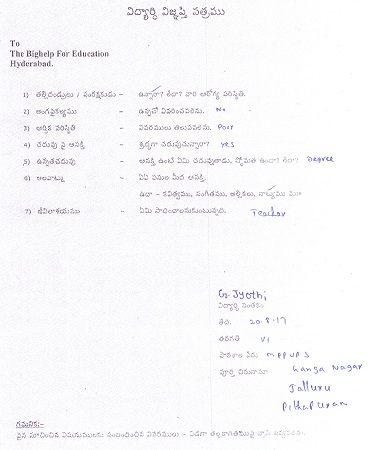 విద్యార్ధి విజ్ఞప్తి పత్రము
To
The Bighelp For Education
Hyderabad.
1) తల్లిదండ్రులు / సంరక్షకుడు - ఉన్నారా? లేదా? వారి ఆరోగ్య పరిస్థితి.
2) అంగవైకల్యము - ఉన్నచో వివరించవలెను. No
3) ఆర్థిక పరిస్థితి - వివరములు తెలుపవలెను. Poor
4) చదువు పై ఆసక్తి - శ్రద్ధగా చదువుచున్నారా? yes
5) ఉన్నతచదువు - ఆసక్తి ఉంటే ఏమి చదువుతాడు, స్తోమత ఉందా? లేదా? Degree
6) అలవాట్లు - ఏఏ పనుల మీద ఆసక్తి.
ఉదా - కవిత్వము, సంగీతము, అల్లికలు, నాట్యము
7) జీవితాశయము - ఏమి సాధించాలనుకుంటున్నది. Teacher
G. Jyothi
విద్యార్ధి సంతకం
తేది. 20-8-17
తరగతి VI
పాఠశాల పేరు MPPUPS
పూర్తి చిరునామా Ganga Nagar
Jalluru
Pithapuram
గమనిక:-
పైన సూచించిన విషయములకు సంబంధించిన వివరములు - విడిగా తెల్లకాగితముపై